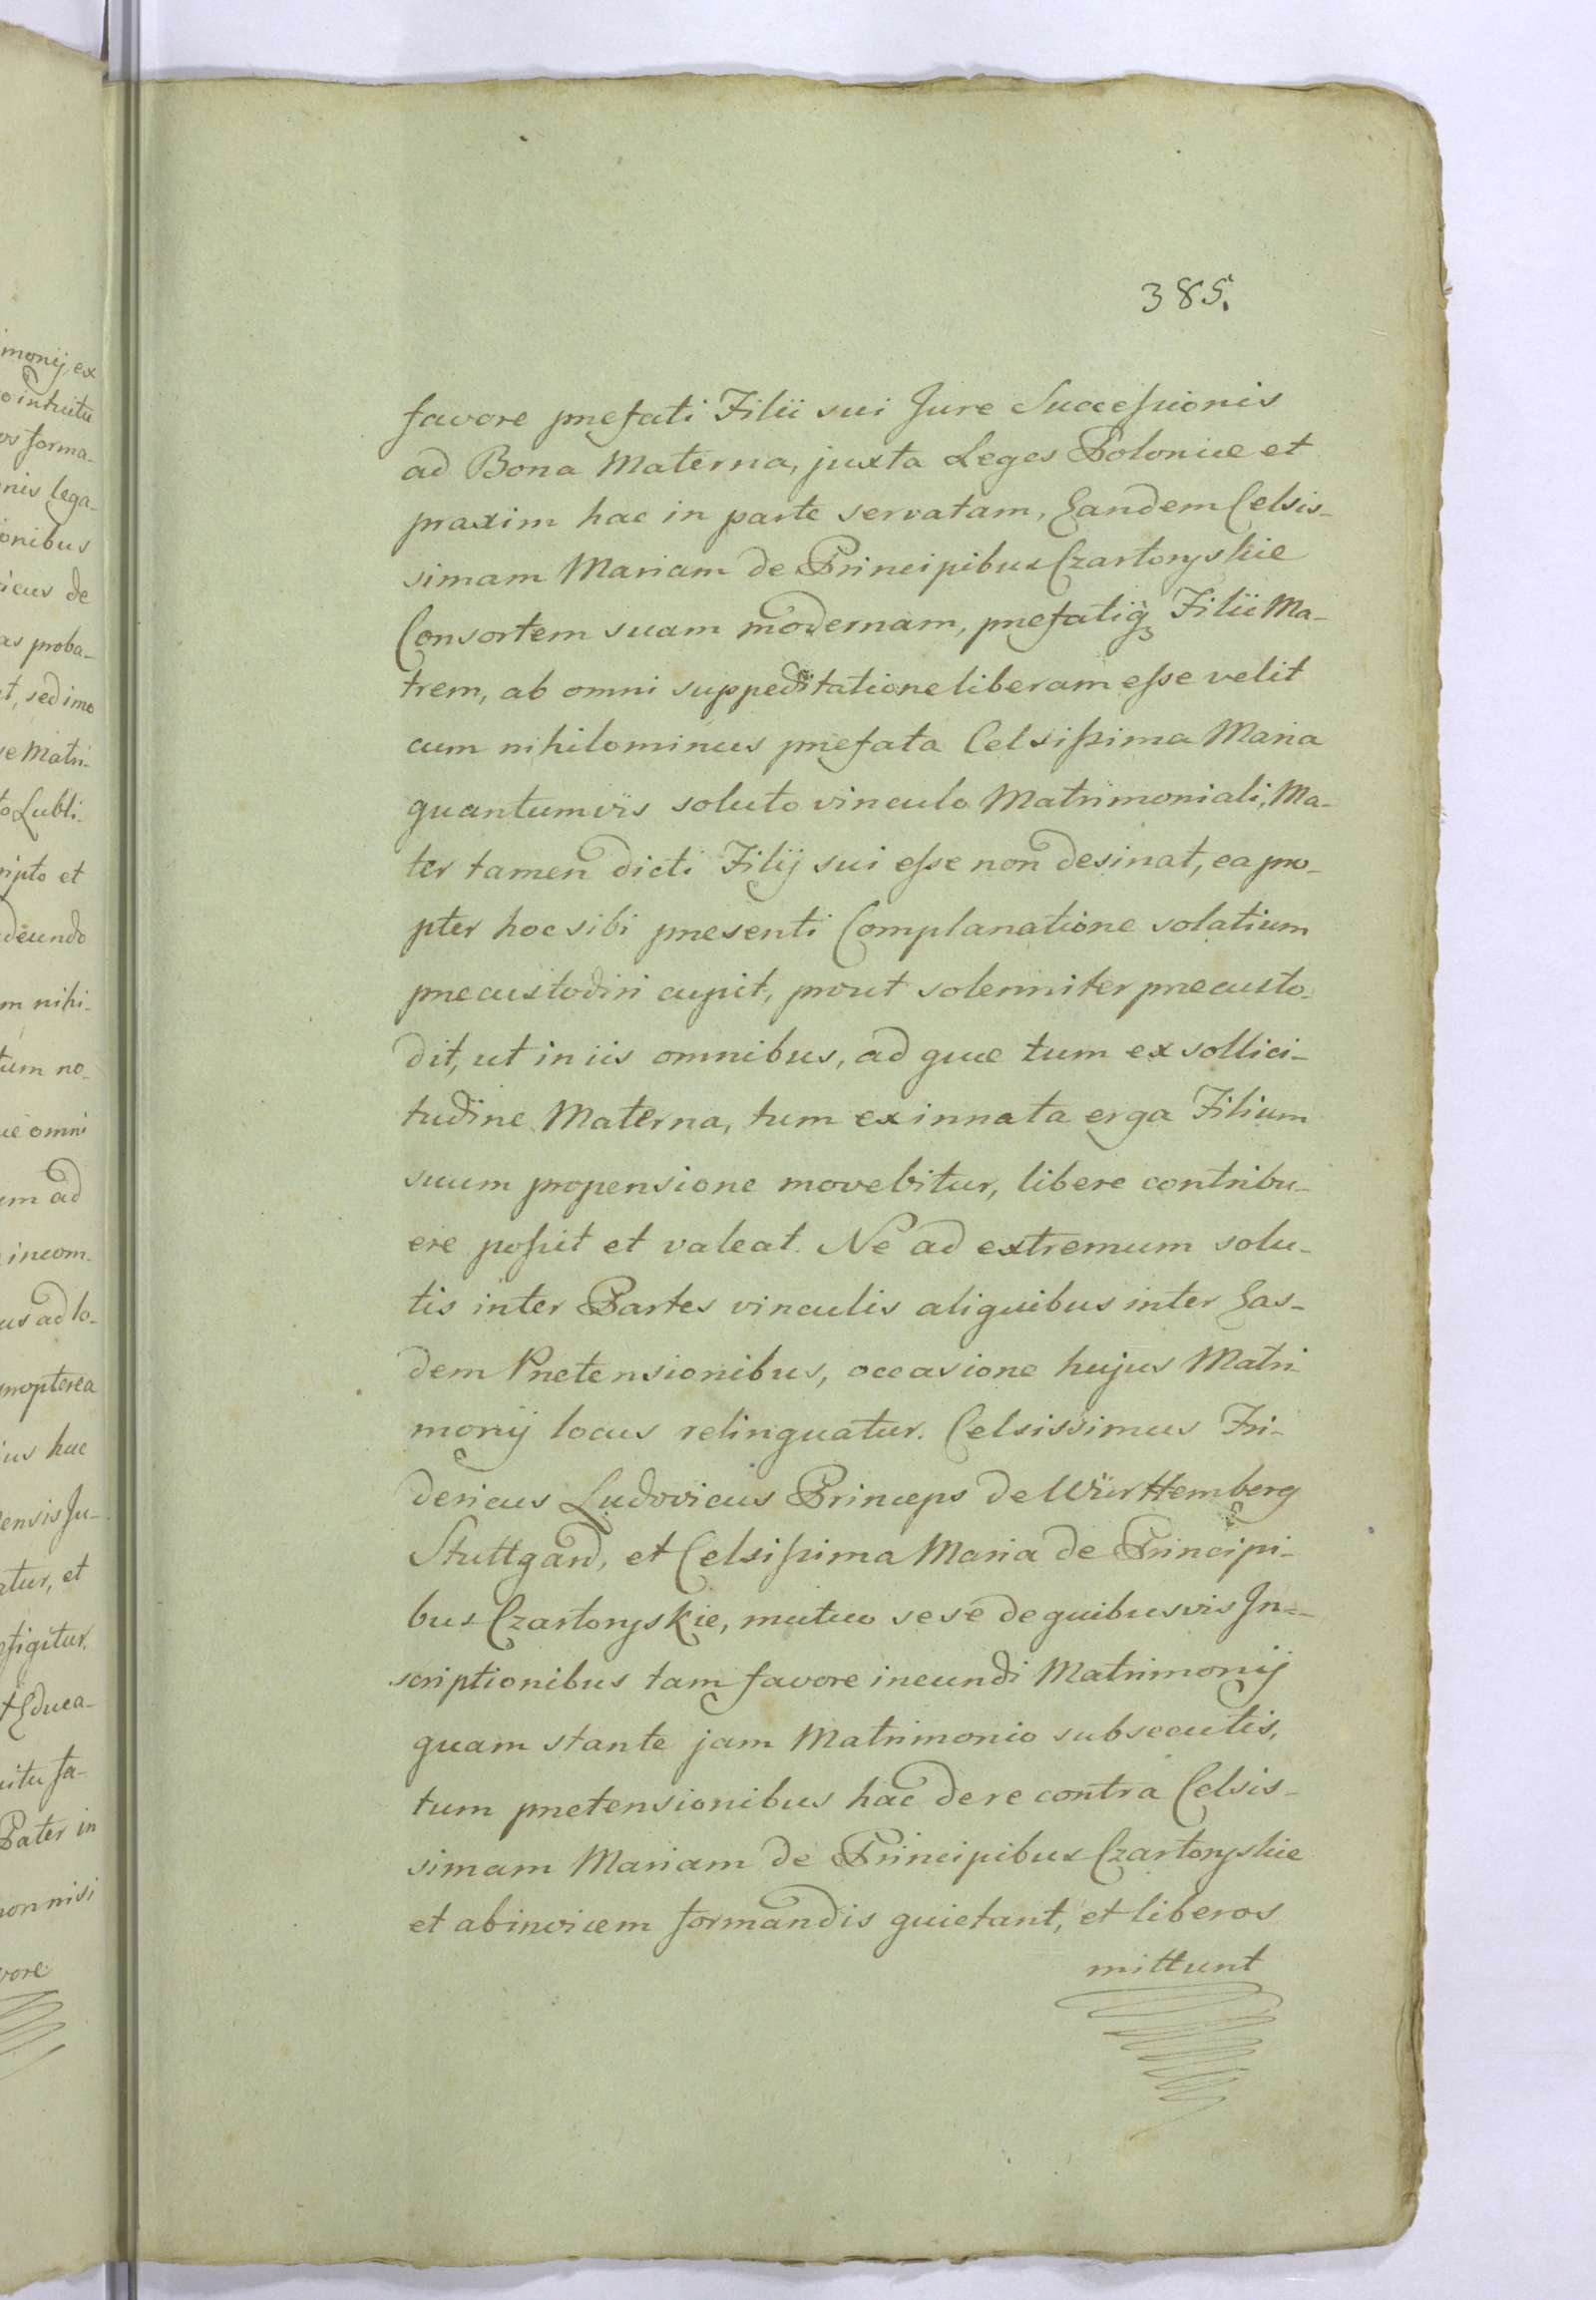 385.
favore præfati Filii sui Jure Successionis
ad Bona Materna, juxta Leges Poloniæ et
praxim hac in parte servatam, Eandem Celsis-
simam Mariam de Principibus Czartoryskie
Consortem suam modernam, præfatiq̃ Filii Ma-
trem, ab omni suppeditatione liberam esse velit
cum nihilominus præfata Celsissima Maria
quantumvis soluto vinculo Matrimoniali, Ma-
ter tamen dicti Filij sui esse non desinat, ea pro-
pter hoc sibi præsenti Complanatione solatium
præcustodiri cupit, prout solenniter præcusto-
dit, ut in iis omnibus, ad quæ tum ex sollici-
tudine Materna, tum ex innata erga Filium
suum propensione movebitur, libere contribu-
ere possit et valeat. Ne ad extremum solu-
tis inter Partes vinculis aliquibus inter Eas-
dem Prætensionibus, occasione hujus Matri-
monij locus relinquatur. Celsissimus Fri-
dericus Ludovicus Princeps de Württemberg
Stuttgard, et Celsissima Maria de Principi-
bus Czartoryskie, mutuo sese de quibusvis In-
scriptionibus tam favore ineundi Matrimonij
quam stante jam Matrimonio subsecutis,
tum prætensionibus hac de re contra Celsis-
simam Mariam de Principibus Czartoryskie
et abinvicem formandis quietant, et liberos
mittunt
monij, ex
intuitu
forma-
nis lega-
onibus
icus de
as proba-
t, sed imo
e Matri-
Lubli-
ripto et
deundo
m nihi-
tum no-
omni
um ad
incom-
us ad lo-
propterea
ius hac
ensis Ju-
atur, et
figitur.
t Educa-
uitu fa-
Pater in
non nisi
vore